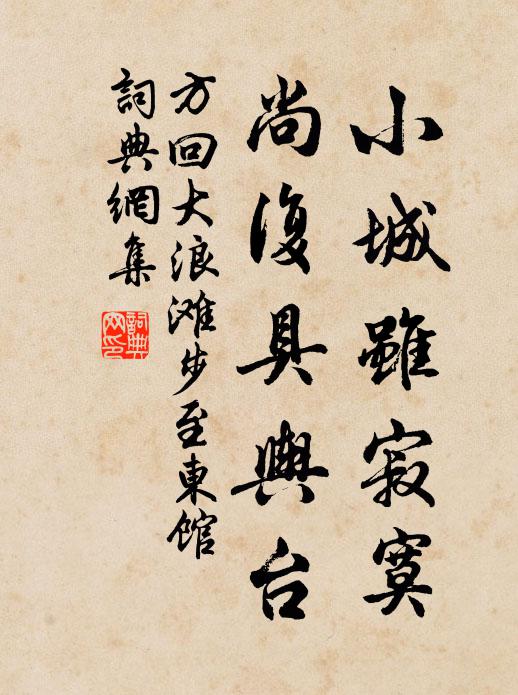 小城雖寂寞
尚復具輿台
方回大浪滩步至東館
詞典網集
詞典網印